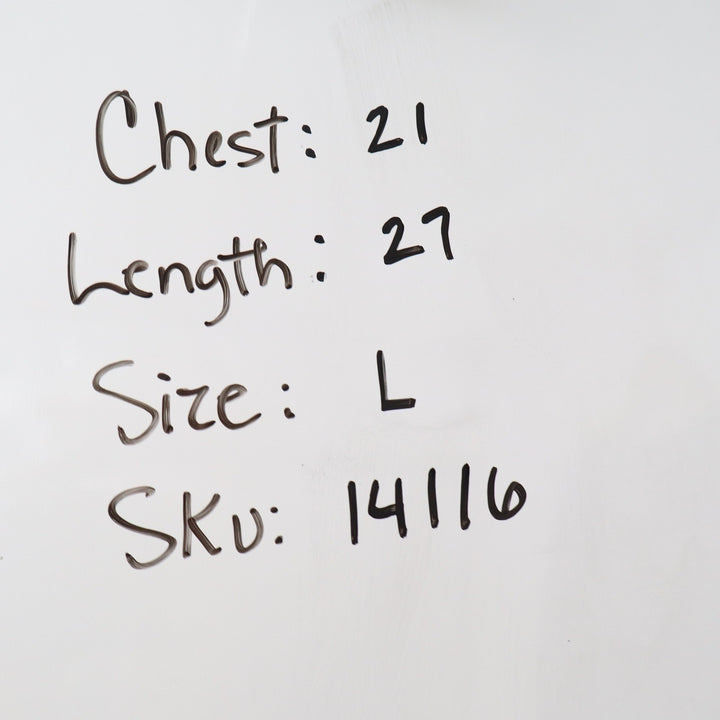 Chest: 21
Length: 27
Size: L
SKU: 14116